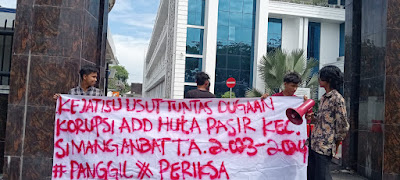 KEJATISU USUT TUNTAS DUGAAN
KORUPSI ADD HUTA PASIR KEC.
SIMANGANBAT T.A. 2023-2024
#PANGGIL X PERIKSA